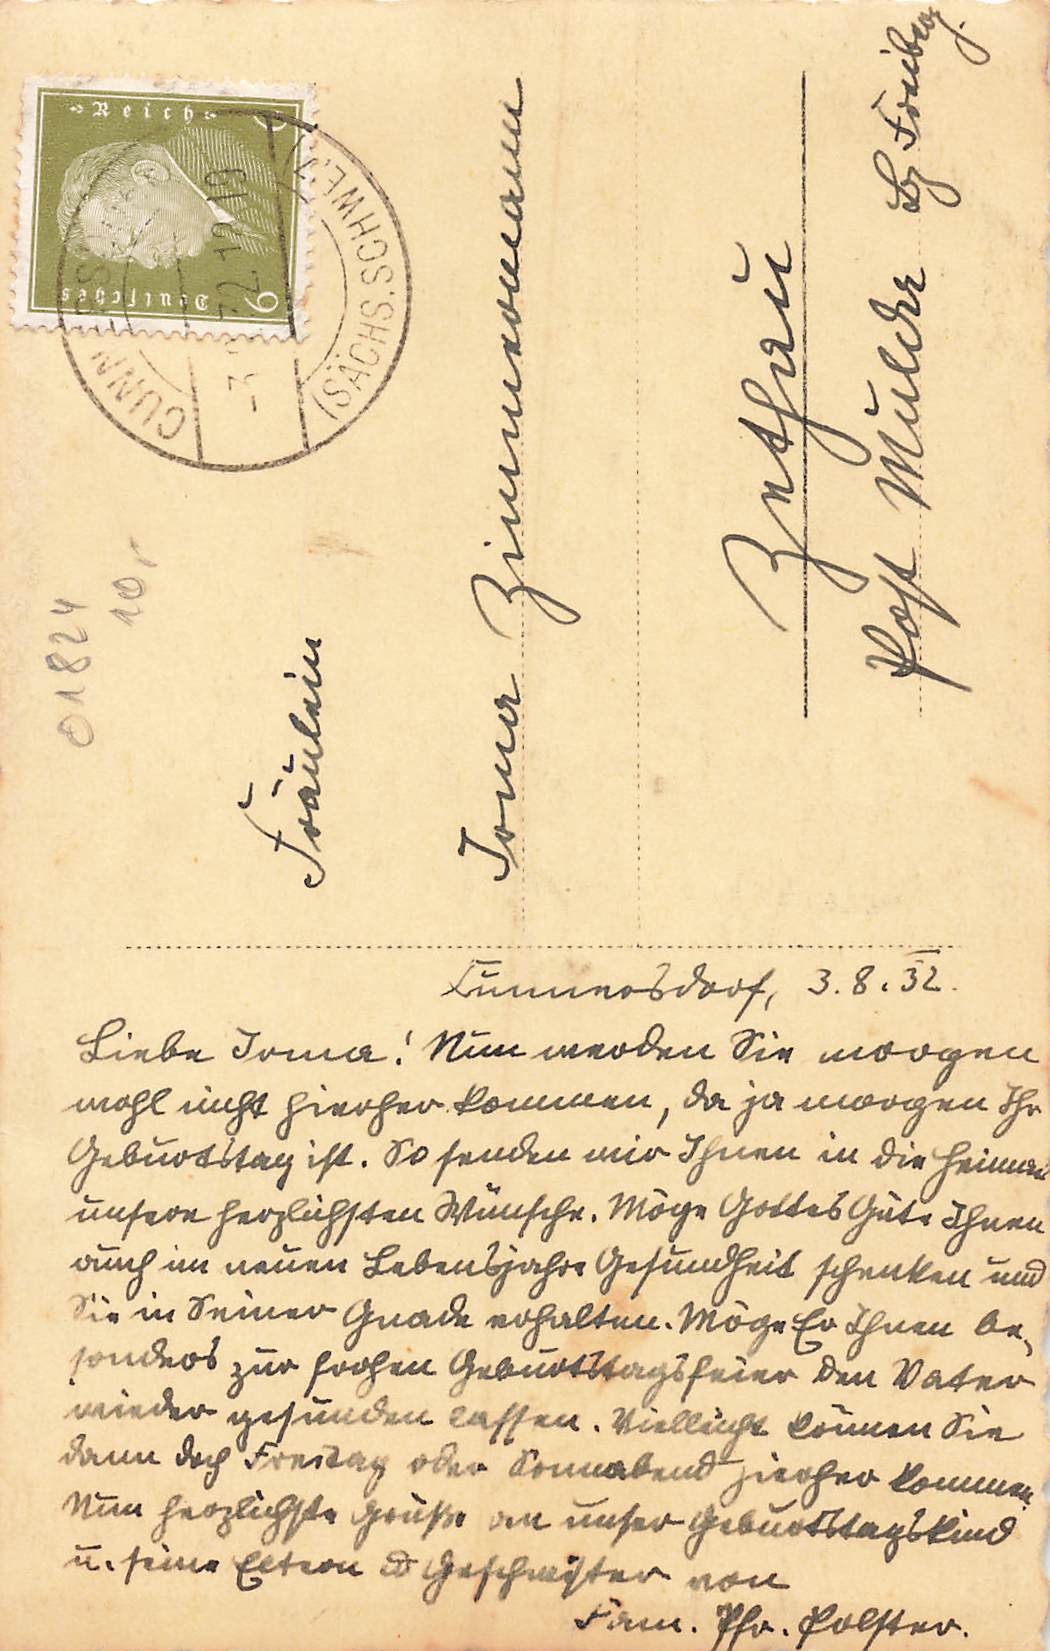 Deutsches Reich
6
(SÄCHS. SCHWEIZ)
01824
10,-
Fräulein
Irma Zimmermann
Zethau
Post Mulda Bz Freiberg.
Cunnersdorf, 3.8.32.
Liebe Irma! Nun werden Sie morgen
wohl nicht hierher kommen, da ja morgen Ihr
Geburtstag ist. So senden wir Ihnen in die Heimat
unsere herzlichsten Wünsche. Möge Gottes Güte Ihnen
auch im neuen Lebensjahre Gesundheit schenken und
Sie in Seiner Gnade erhalten. Möge Er Ihnen be-
sonders zur frohen Geburtstagsfeier den Vater
wieder gesunden lassen. Vielleicht können Sie
dann doch Freitag oder Sonnabend hierher kommen.
Nun herzlichste Grüße an unser Geburtstagskind
u. seine Eltern u. Geschwister von
Fam. Pfr. Polster.